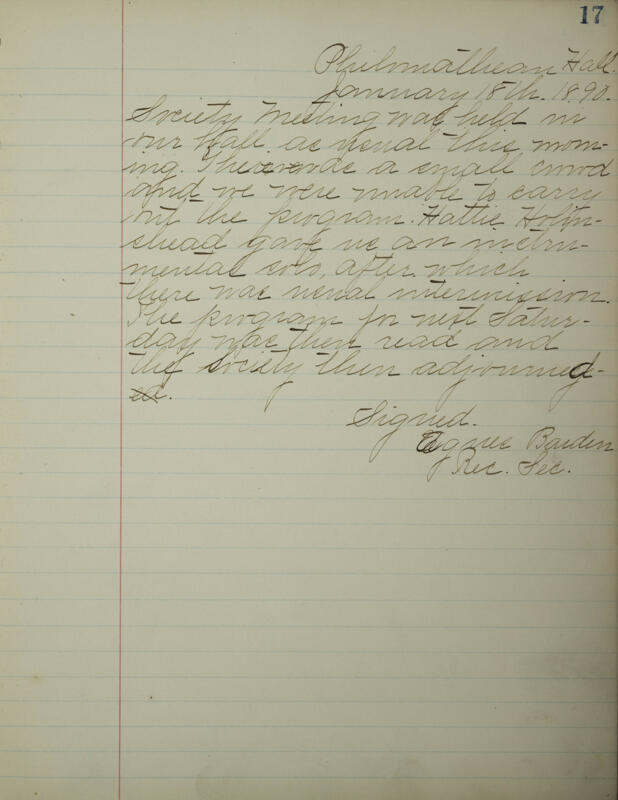 17
Philomathean Hall.
January 18th. 1890.
Society Meeting was held in
our Hall as usual this morn-
ing. There was a small crowd
and we were unable to carry
out the program. Hattie Holin-
shead gave us an instru-
mental solo, after which
there was usual intermission.
The program for next Satur-
day was then read and
the society then adjourned-
ed.
Signed.
Agnes Barden
Rec. Sec.